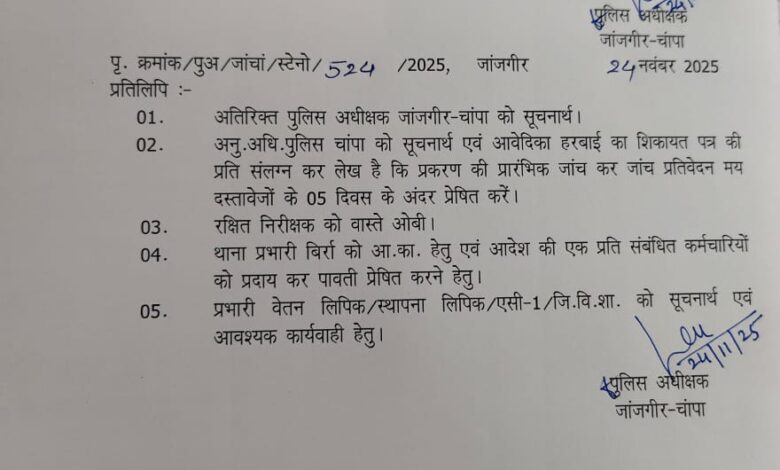 पुलिस अधीक्षक
जांजगीर-चांपा
पृ. क्रमांक/पुअ/जांचां/स्टेनो/524 /2025, जांजगीर 24 नवंबर 2025
प्रतिलिपि :-
01. अतिरिक्त पुलिस अधीक्षक जांजगीर-चांपा को सूचनार्थ।
02. अनु.अधि.पुलिस चांपा को सूचनार्थ एवं आवेदिका हरबाई का शिकायत पत्र की
प्रति संलग्न कर लेख है कि प्रकरण की प्रारंभिक जांच कर जांच प्रतिवेदन मय
दस्तावेजों के 05 दिवस के अंदर प्रेषित करें।
03. रक्षित निरीक्षक को वास्ते ओबी।
04. थाना प्रभारी बिर्रा को आ.का. हेतु एवं आदेश की एक प्रति संबंधित कर्मचारियों
को प्रदाय कर पावती प्रेषित करने हेतु।
05. प्रभारी वेतन लिपिक/स्थापना लिपिक/एसी-1/जि.वि.शा. को सूचनार्थ एवं
आवश्यक कार्यवाही हेतु।
24/11/25
पुलिस अधीक्षक
जांजगीर-चांपा